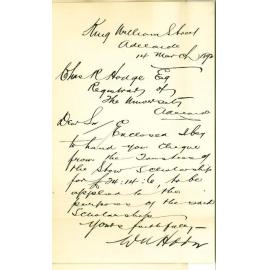 King William Street
Adelaide
14 March 189
Chas R Hodge Esq
Registrar of
The University
Adelaide
Dear Sir
Enclosed I beg
to hand you cheque
from the Trustees of
the Stow Scholarship
for £ 14: 6 to be
applied to the
purposes of the said
Scholarship
Yours faithfully